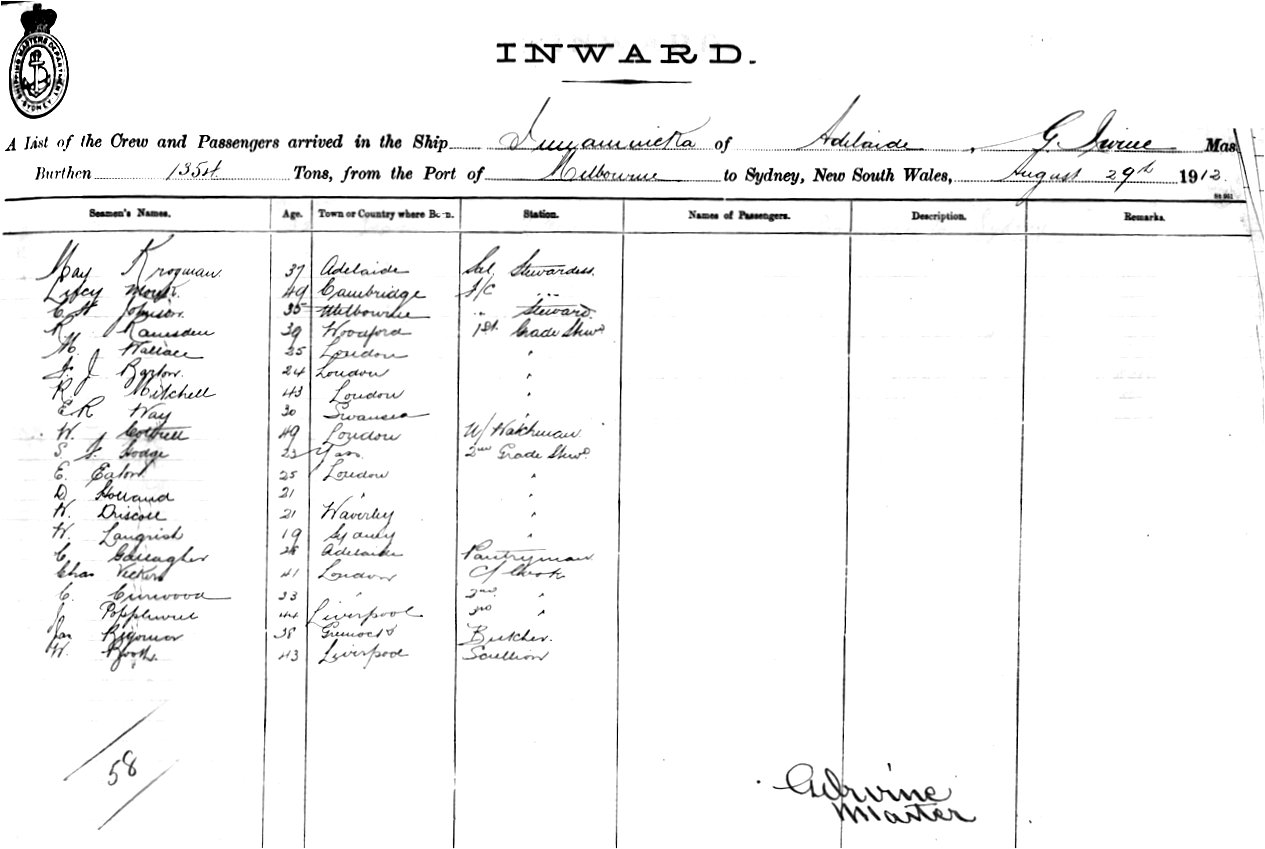 SHIPPING MASTERS DEPARTMENT SYDNEY
INWARD.
A List of the Crew and Passengers arrived in the Ship Innamincka of Adelaide, G. Irvine Mas
Burthen 1354 Tons, from the Port of Melbourne to Sydney, New South Wales, August 29th 1912
Seamen's Names. Age. Town or Country where Born. Station. Names of Passengers. Description. Remarks.
May Krogman 37 Adelaide Sal. Stewardess
49 Cambridge
C H Johnson 35 Melbourne " Steward
R Ramsden 39 Woodford 1st Grade Stewd
M. Wallace 25 London "
J. Barton 24 London "
R Mitchell 43 London "
E R Way 30 Swansea
W. Cottrell 49 London W/ Watchman
S. J. Hodge 23 Tas 2nd Grade Stewd
E. Eaton 25 London "
D Holland 21 " "
W. Driscoll 21 Waverley "
W. Langrish 19 Sydney "
C. Gallagher 28 Adelaide Pantryman
Chas Vickers 41 London C/ Cook
C. Curwood 33 " 2nd "
J. Popplewell 44 Liverpool 3rd "
Jas 38 Greenock Butcher.
W. Booth 43 Liverpool Scullion
58
G Irvine
Master